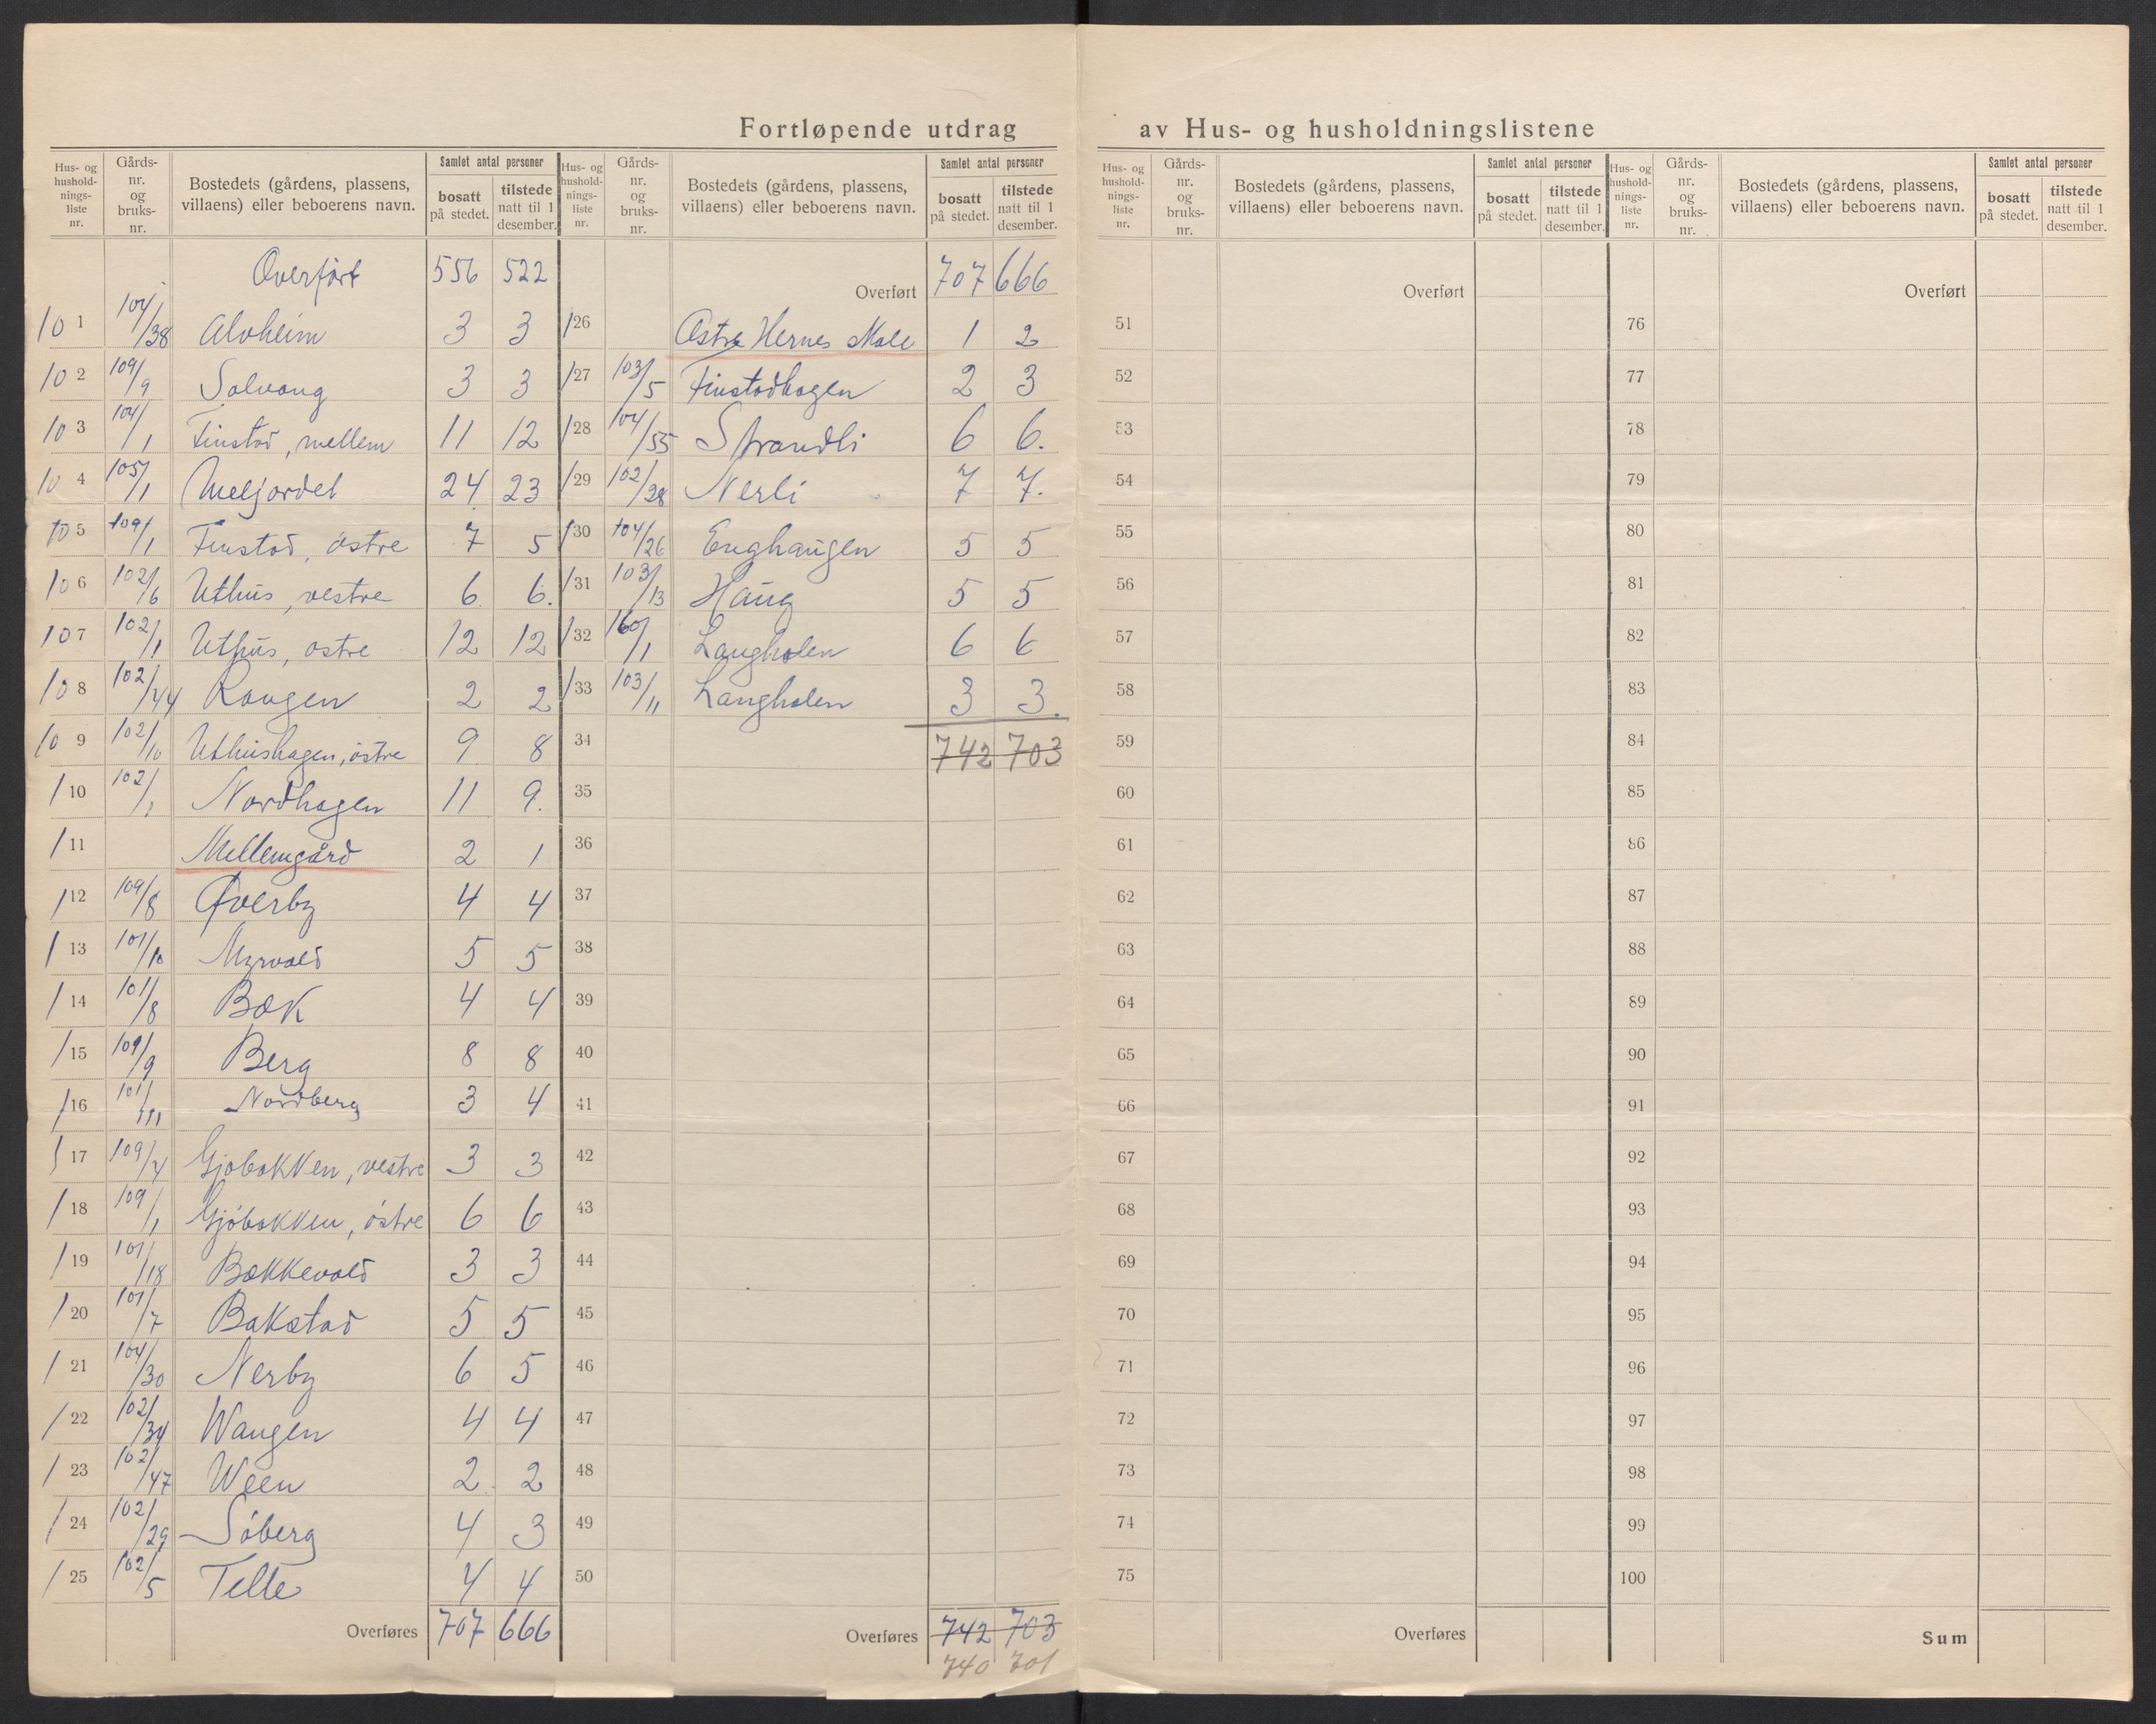 Fortløpende utdrag av Hus- og husholdningslistene
Hus- og hushold-nings-liste nr. | Gårds-nr. og bruks-nr. | Bostedets (gårdens, plassens, villaens) eller beboerens navn. | Samlet antal personer | bosatt på stedet. | tilstede natt til 1 desember.
Overført 556 522
101 104/38 Alvheim 3 3
102 109/9 Solvang 3 3
103 104/1 Finstad, mellem 11 12
104 105/1 Meljordet 24 23
105 109/1 Finstad, østre 7 5
106 102/6 Uthus, vestre 6 6
107 102/1 Uthus, østre 12 12
108 102/44 Raugen 2 2
109 102/10 Uthushagen, østre 9 8
110 102/1 Nordhagen 11 9
111 Mellemgård 2 1
112 109/8 Øverby 4 4
113 101/10 Myrvold 5 5
114 101/8 Bæk 4 4
115 109/9 Berg 8 8
116 101/111 Nordberg 3 4
117 109/4 Gjøbakken, vestre 3 3
118 109/1 Gjøbakken, østre 6 6
119 101/18 Bækkevold 3 3
120 101/7 Bakstad 5 5
121 104/30 Nerby 6 5
122 102/34 Wangen 4 4
123 102/47 Ween 2 2
124 102/29 Søberg 4 3
125 102/5 Telle 4 4
Overføres 707 666
Hus- og hushold-nings-liste nr. | Gårds-nr. og bruks-nr. | Bostedets (gårdens, plassens, villaens) eller beboerens navn. | Samlet antal personer | bosatt på stedet. | tilstede natt til 1 desember.
Overført 707 666
126 Østre Hernes skole 1 2
127 103/5 Finstadhagen 2 3
128 104/55 Strandli 6 6.
129 102/28 Nerli 7 7.
130 104/26 Enghaugen 5 5
131 103/13 Haug 5 5
132 160/1 Langholen 6 6
133 103/11 Langholen 3 3.
34 742 703
35
36
37
38
39
40
41
42
43
44
45
46
47
48
49
50
Overføres 742 703
740 701
Hus- og hushold-nings-liste nr. | Gårds-nr. og bruks-nr. | Bostedets (gårdens, plassens, villaens) eller beboerens navn. | Samlet antal personer | bosatt på stedet. | tilstede natt til 1 desember.
Overført
51
52
53
54
55
56
57
58
59
60
61
62
63
64
65
66
67
68
69
70
71
72
73
74
75
Overføres
Hus- og hushold-nings-liste nr. | Gårds-nr. og bruks-nr. | Bostedets (gårdens, plassens, villaens) eller beboerens navn. | Samlet antal personer | bosatt på stedet. | tilstede natt til 1 desember.
Overført
76
77
78
79
80
81
82
83
84
85
86
87
88
89
90
91
92
93
94
95
96
97
98
99
100
Sum